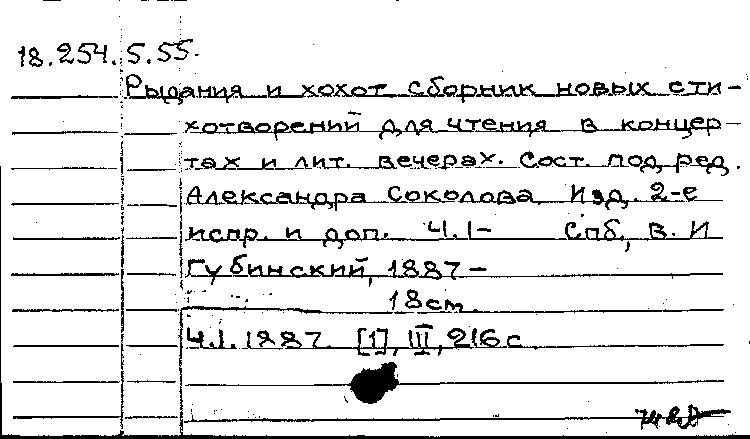 18.254.5.55.
Рыдания и хохот сборник новых сти-
хотворений для чтения в концер-
тах и лит. вечерах. Сост. под ред.
Александра Соколова. Изд. 2-е
испр. и доп. Ч.1- Спб., В. И
Губинский, 1887-
18 см.
Ч.1. 1887. [1], III, 216 с.